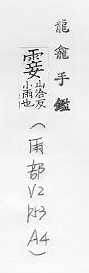 龍龕手鑑
霎
山洽反
小雨也
(雨部
V2
P53
A4)